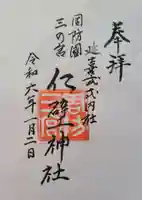 奉拝
延喜式式内社
周防国
三の宮
仁壁神社
令和六年一月二日